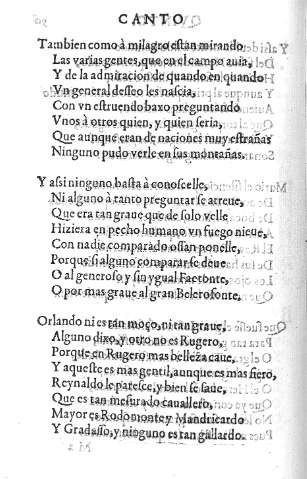 CANTO
Tambien como à milagro estan mirando
Las varias gentes, que en el campo auia,
Y de la admiracion de quando en quando
Vn general desseo les nascia,
Con vn estruendo baxo preguntando
Vnos à otros quien, y quien seria,
Que aunque eran de naciones muy estrañas
Ninguno pudo verle en sus montañas.
Y assi ninguno basta à conoscelle,
Ni alguno à tanto preguntar se atreue,
Que era tan graue que de solo velle
Hiziera en pecho humano vn fuego nieue,
Con nadie comparado ossan ponelle,
Porque si alguno comparar se deue
O al generoso y sin ygual Faetonte,
O por mas graue al gran Belerofonte.
Orlando ni es tan moço, ni tan graue,
Alguno dixo, y otro no es Rugero,
Porque en Rugero mas belleza caue,
Y aqueste es mas gentil, aunque es mas fiero,
Reynaldo le paresce, y bien se saue,
Que es tan mesurado cauallero,
Mayor es Rodomonte y Mandricardo
Y Gradasso, y ninguno es tan gallardo.